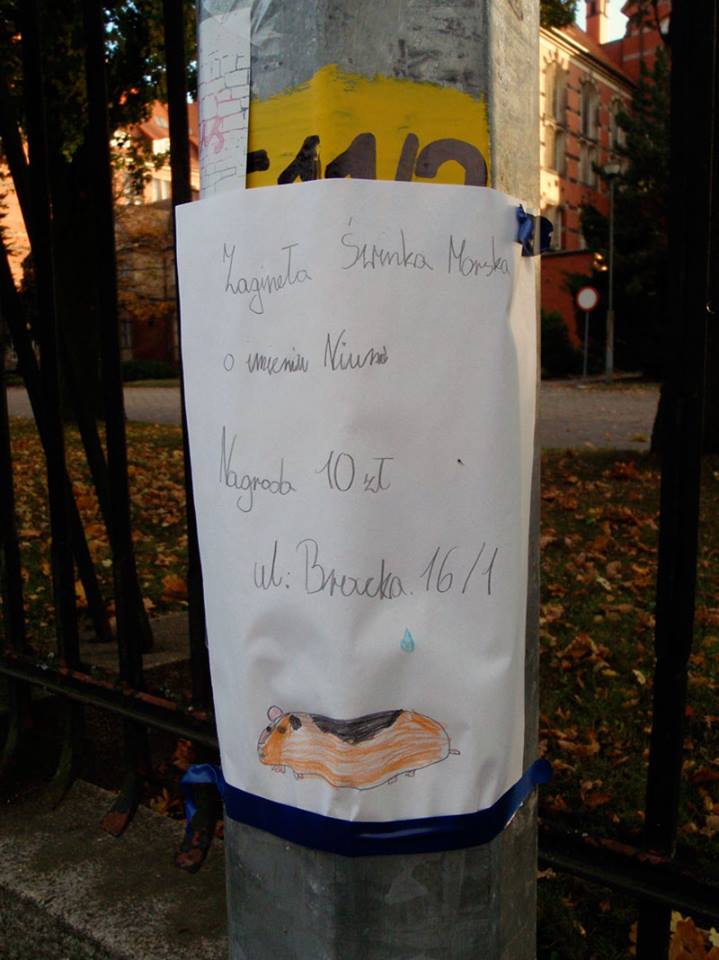 11/2
Zagineła Świnka Morska
o imieniu Niunia
Nagroda 10 zł
ul: Bracka. 16/1